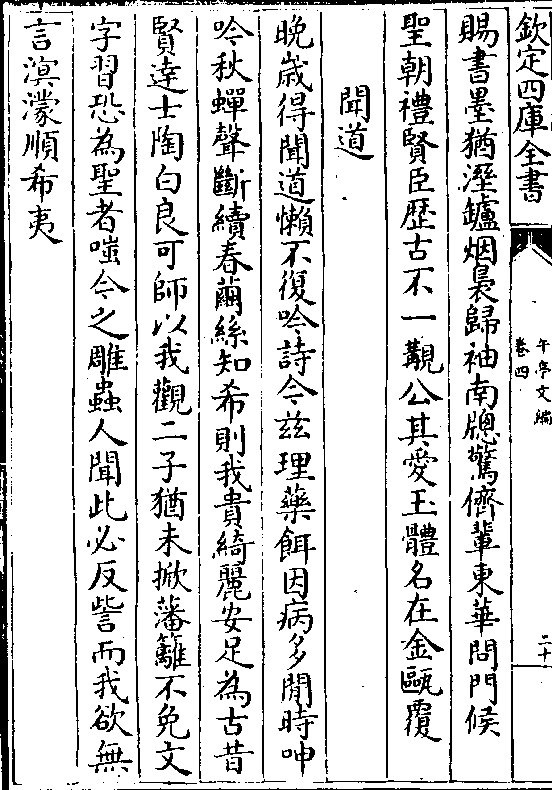 欽定四庫全書
午亭文編
卷四
二十
賜書墨猶溼鑪烟裊歸袖南牕驚儕輩東華問門候
聖朝禮賢臣歴古不一覯公其愛玉體名在金甌覆
聞道
晚歳得聞道懶不復吟詩今兹理藥餌因病多閒時呻
吟秋蟬聲斷續春繭絲知希則我貴綺麗安足為古昔
賢達士陶白良可師以我觀二子猶未掀藩籬不免文
字習恐為聖者嗤今之雕蟲人聞此必反訾而我欲無
言溟濛順希夷